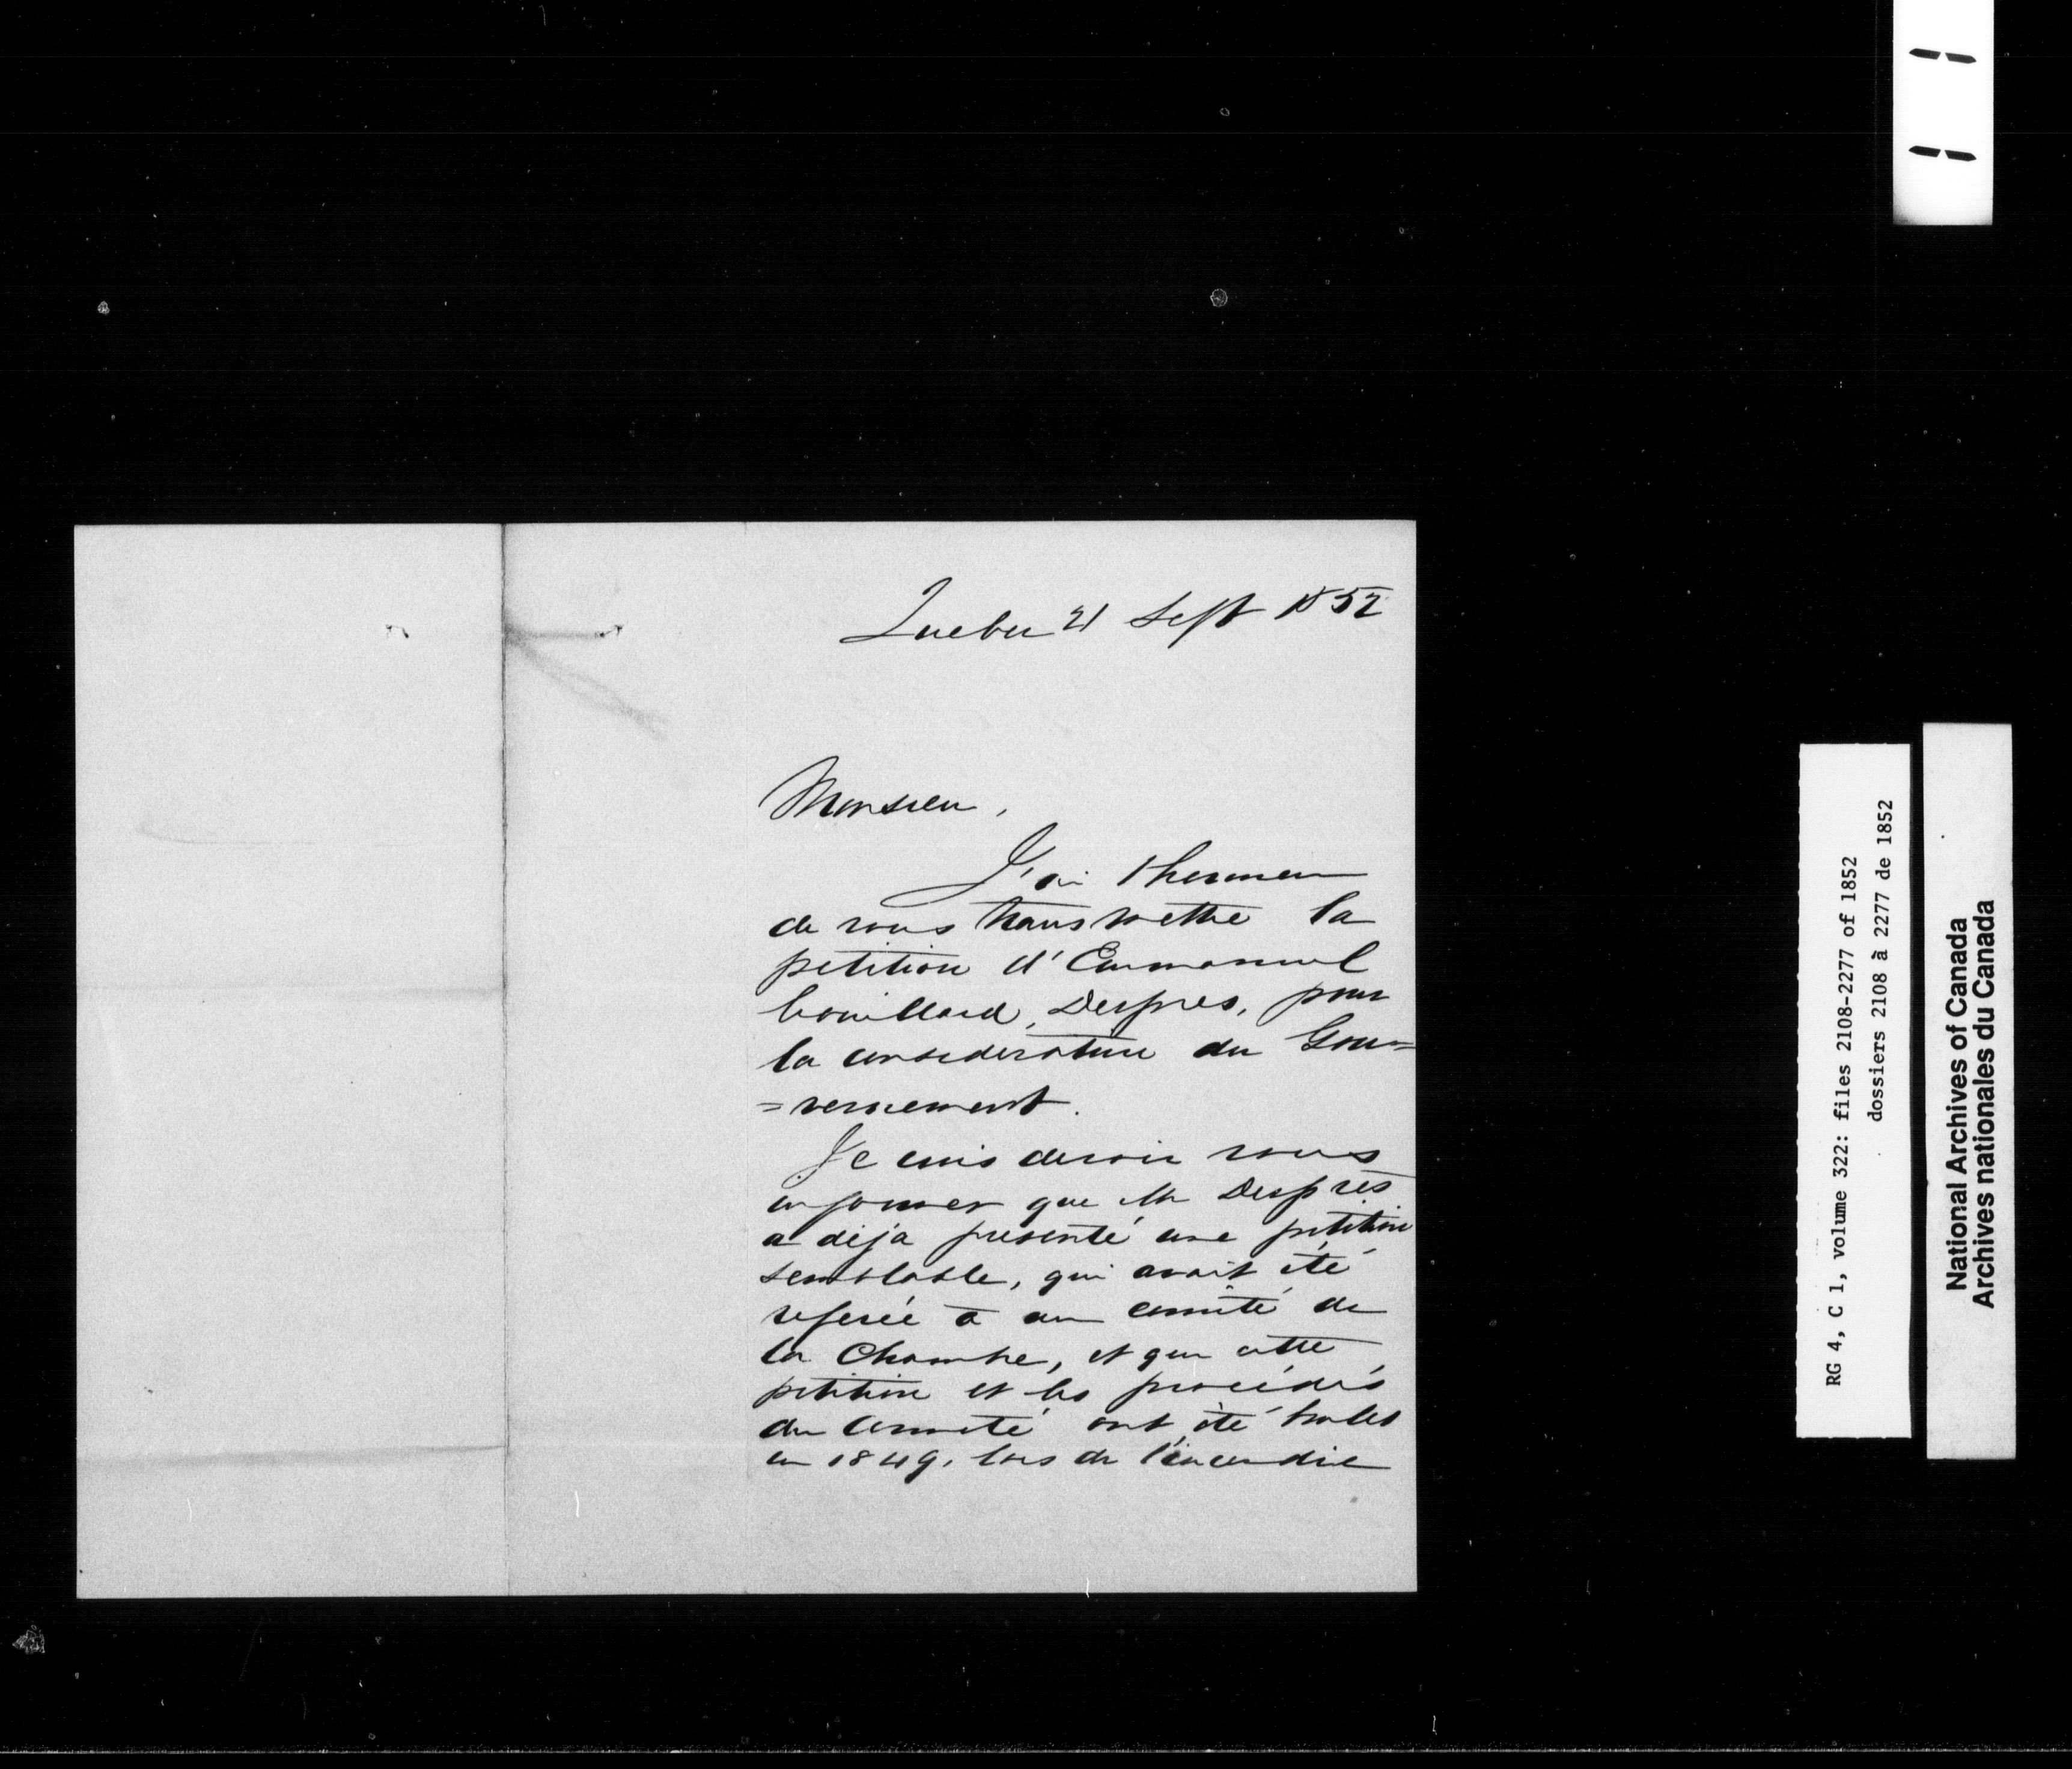 Quebec 21 Sept 1852
Monsieur,
J'ai l'honneur
de vous transmettre la
petition d'Emmanuel
Couillard, Després, pour
la consideration du Gou=
=vernement.
Je crois devoir vous
informer que Mr Després
a déja presenté une petition
semblable, qui avait été
referée à un comité de
la Chambre, et que cette
petition et les procédés
du Comité ont été brulés
en 1849, lors de l'incendie
RG 4, C 1, volume 322: files 2108-2277 of 1852
dossiers 2108 à 2277 de 1852
National Archives of Canada
Archives nationales du Canada